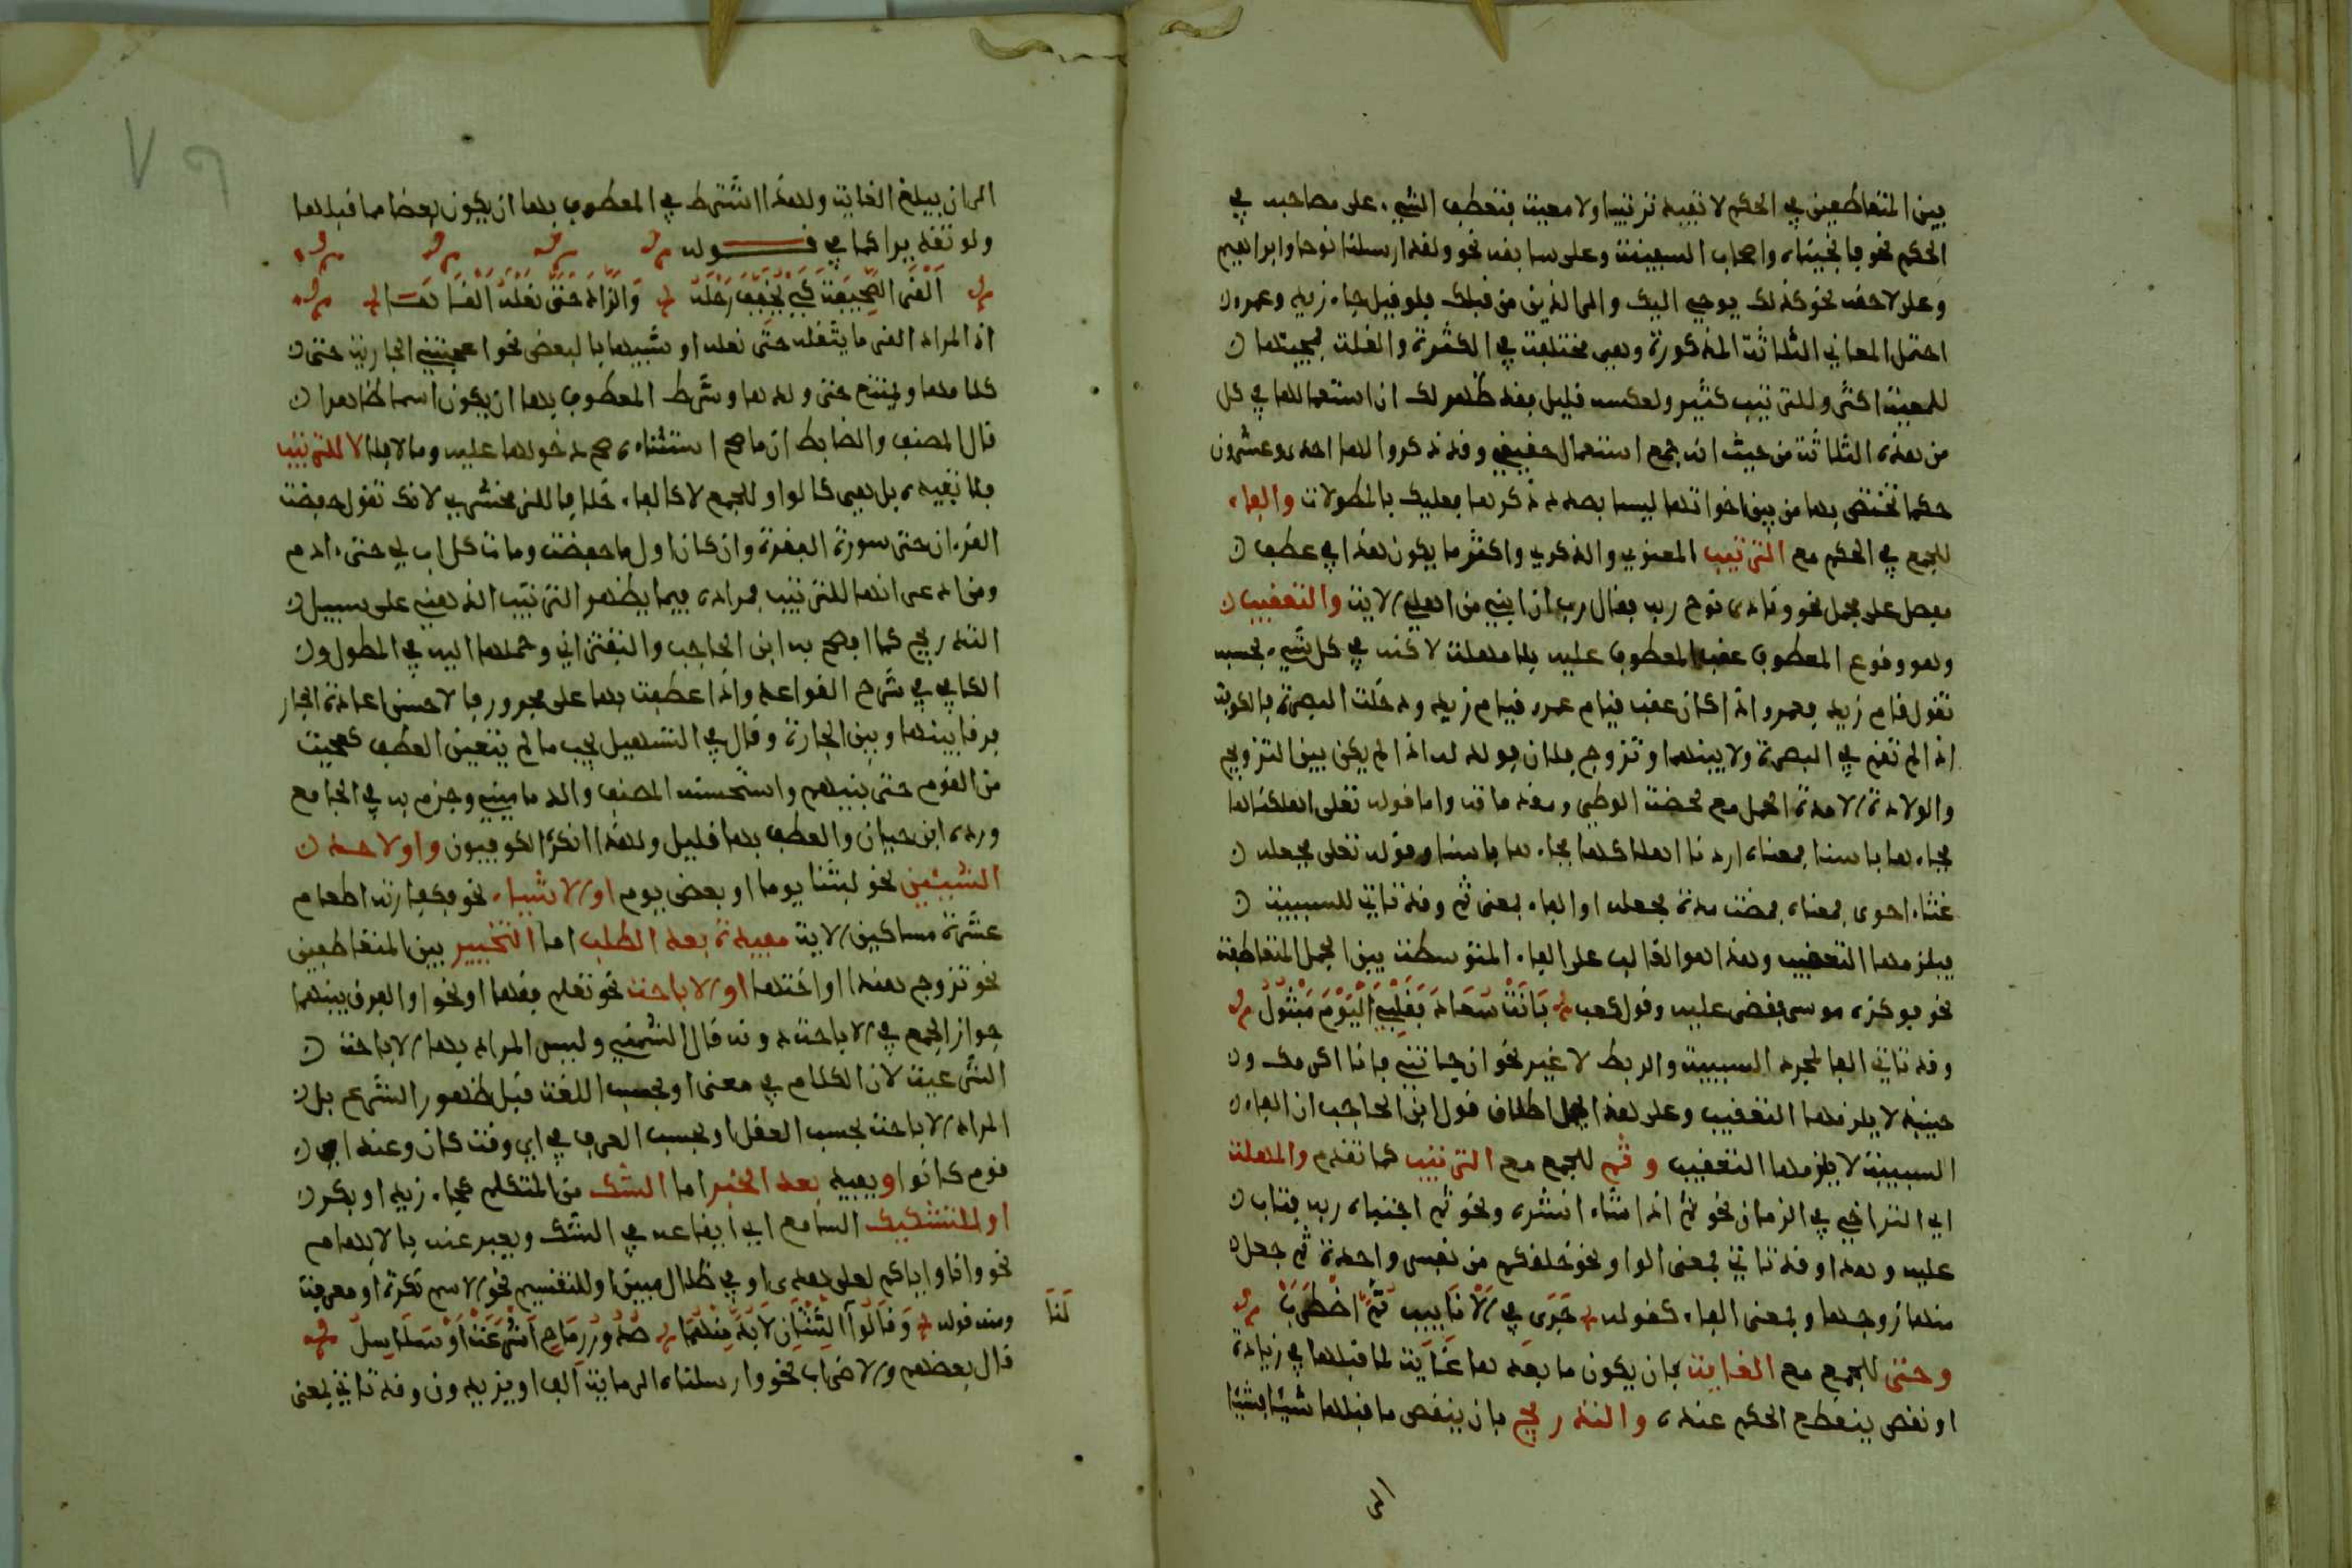 بين المتعاطفين في الحكم لا تفيد ترتيبا ولا معية فتعطف الشيء على مصاحبه في
الحكم نحو فانجيناه واصحاب السفينة وعلى سابقه نحو ولقد ارسلنا نوحا وابراهيم
وعلى لاحقه نحو كذلك يوحي اليك والى الذين من قبلك فلو قيل جاء زيد وعمرو
احتمل المعاني الثلاثة المذكورة وهي مختلفة في الكثرة والقلة فمجيئها
للمعية اكثر وللترتيب كثير ولعكسه قليل فقد ظهر لك ان استعمالها في كل
من هذه الثلاثة من حيث انه جمع استعمال حقيقي وقد ذكروا لها احدى وعشرون
حكما تختص بها من بين اخواتها ليسا بصدد ذكرها فعليك بالمطولات والفاء
للجمع في الحكم مع الترتيب المعنوي والذكري واكثر ما يكون هذا في عطف
مفصل على مجمل نحو ونادى نوح ربه فقال رب ان ابني من اهلي الاية والتعقيب
وهو وقوع المعطوف عقب المعطوف عليه بلا مهلة لاكنه في كل شيء بحسبه
تقول قام زيد فعمرو اذا كان عقب قيام عمرو قيام زيد ودخلت البصرة فالكوفة
اذا لم تقم في البصرة ولا بينهما وتزوج فلان فولد له اذا لم يكن بين التزويج
والولادة الا مدة الحمل مع لحضة الوطي ومقدماته واما قوله تعلى اهلكناها
فجاءها باسنا فمعناه اردنا اهلاكها فجاءها باسنا وقوله تعلى فجعله
غثاء احوى فمعناه فمضت مدة فجعله او الفاء بمعنى ثم وقد تاتي للسببية
فيلزمها التعقيب وهذا هو الغالب على الفاء المتوسطة بين الجمل المتعاطفة
نحو فوكزه موسى فقضى عليه وقول كعب بَانَتْ سُعَادُ فَقَلْبِي الْيَوْمَ مَتْبُولُ
وقد تاتي الفا لمجرد السببية والربط لا غير نحو ان جاتني فانا اكرمك و
حينئذ لا يلزمها التعقيب وعلى هذا يحمل اطلاق قول ابن الحاجب ان الفاء
السببية لا يلزمها التعقيب وثم للجمع مع الترتيب كما تقدم والمهلة
اي التراخي في الزمان نحو ثم اذا شاء انشره ونحو ثم اجتباه ربه فتاب
عليه وهدا وقد تاتي بمعنى الواو نحو خلقكم من نفس واحدة ثم جعل
منها زوجها وبمعنى الفاء كقوله جَرَى فِي الْأَنَابِيبِ ثُمَّ اضْطَرَبْ
وحتى للجمع مع الغاية بان يكون ما بعدها غاية لما قبلها في زيادة
او نقص ينقطع الحكم عنده والتدريج بان ينقص ما قبلها شيئا فشيئا
الى
الى ان يبلغ الغاية ولهذا اشترط في المعطوف بها ان يكون بعضا مما قبلها
ولو تقديرا كما في قوله
أَلْقَى الصَّحِيفَةَ كَيْ يُخَفِّفَ رَحْلَهُ وَالزَّادَ حَتَّى نَعْلَهُ أَلْقَاهَا
اذ المراد القى ما يثقله حتى نعله او شبيها بالبعض نحو اعجبتني الجارية حتى
كلامها ويمتنع حتى ولدها وشرط المعطوف بها ان يكون اسما ظاهرا
قال المصنف والضابط ان ما صح استثناءه صح دخولها عليه وما لا فلا لا للترتيب
فلا تفيده بل هي كالواو للجمع لا كالفاء خلافا للزمخشري لانك تقول حفضت
القرءان حتى سورة البقرة وان كان اول ما حفضت ومات كل اب لي حتى ءادم
ومن ادعى انها للترتيب فمراده فيما يظهر الترتيب الذهني على سبيل
التدريج كما افصح به ابن الحاجب والتفتزاني وحملها اليه في المطول و
الكافيجي في شرح القواعد واذا عطفت بها على مجرور فالاحسن اعادة الجار
فرقا بينها وبين الجارة وقال في التسهيل يجب ما لم يتعين العطف كعجبت
من القوم حتى بنيهم واستحسنه المصنف والدماميني وجزم به في الجامع
ورده ابن حيان والعطف بها قليل ولهذا انكره الكوفيون واو لاحد
الشيئين نحو لبثنا يوما او بعض يوم او الاشياء نحو فكفارته اطعام
عشرة مساكين الاية مفيدة بعد الطلب اما التخيير بين المتعاطفين
نحو تزوج هندا او اختها او الاباحة نحو تعلم فقها او نحوا والفرق بينهما
جواز الجمع في الاباحة دونه قال الشمني وليس المراد بها الاباحة
الشرعية لان الكلام في معنى او بحسب اللغة قبل ظهور الشرع بل
المراد الاباحة بحسب العقل او بحسب العرف في اي وقت كان وعند اي
قوم كانوا ويفيد بعد الخبر اما الشك من المتكلم كجاء زيد او بكر
او للتشكيك السامع اي ايقاعه في الشك ويعبر عنه بالابهام
نحو وانا واياكم لعلى هدى او في ظلال مبين او للتقسيم نحو الاسم نكرة او معرفة
ومنه قوله وَقَالُوا لَنَا ثِنْتَانِ لَا بُدَّ مِنْهُمَا صُدُورُ رِمَاحٍ أُشْرِعَتْ أَوْ سَلَاسِلُ
قال بعضهم والاضراب نحو وارسلناه الى ماية الف او يزيدون وقد تاتي بمعنى